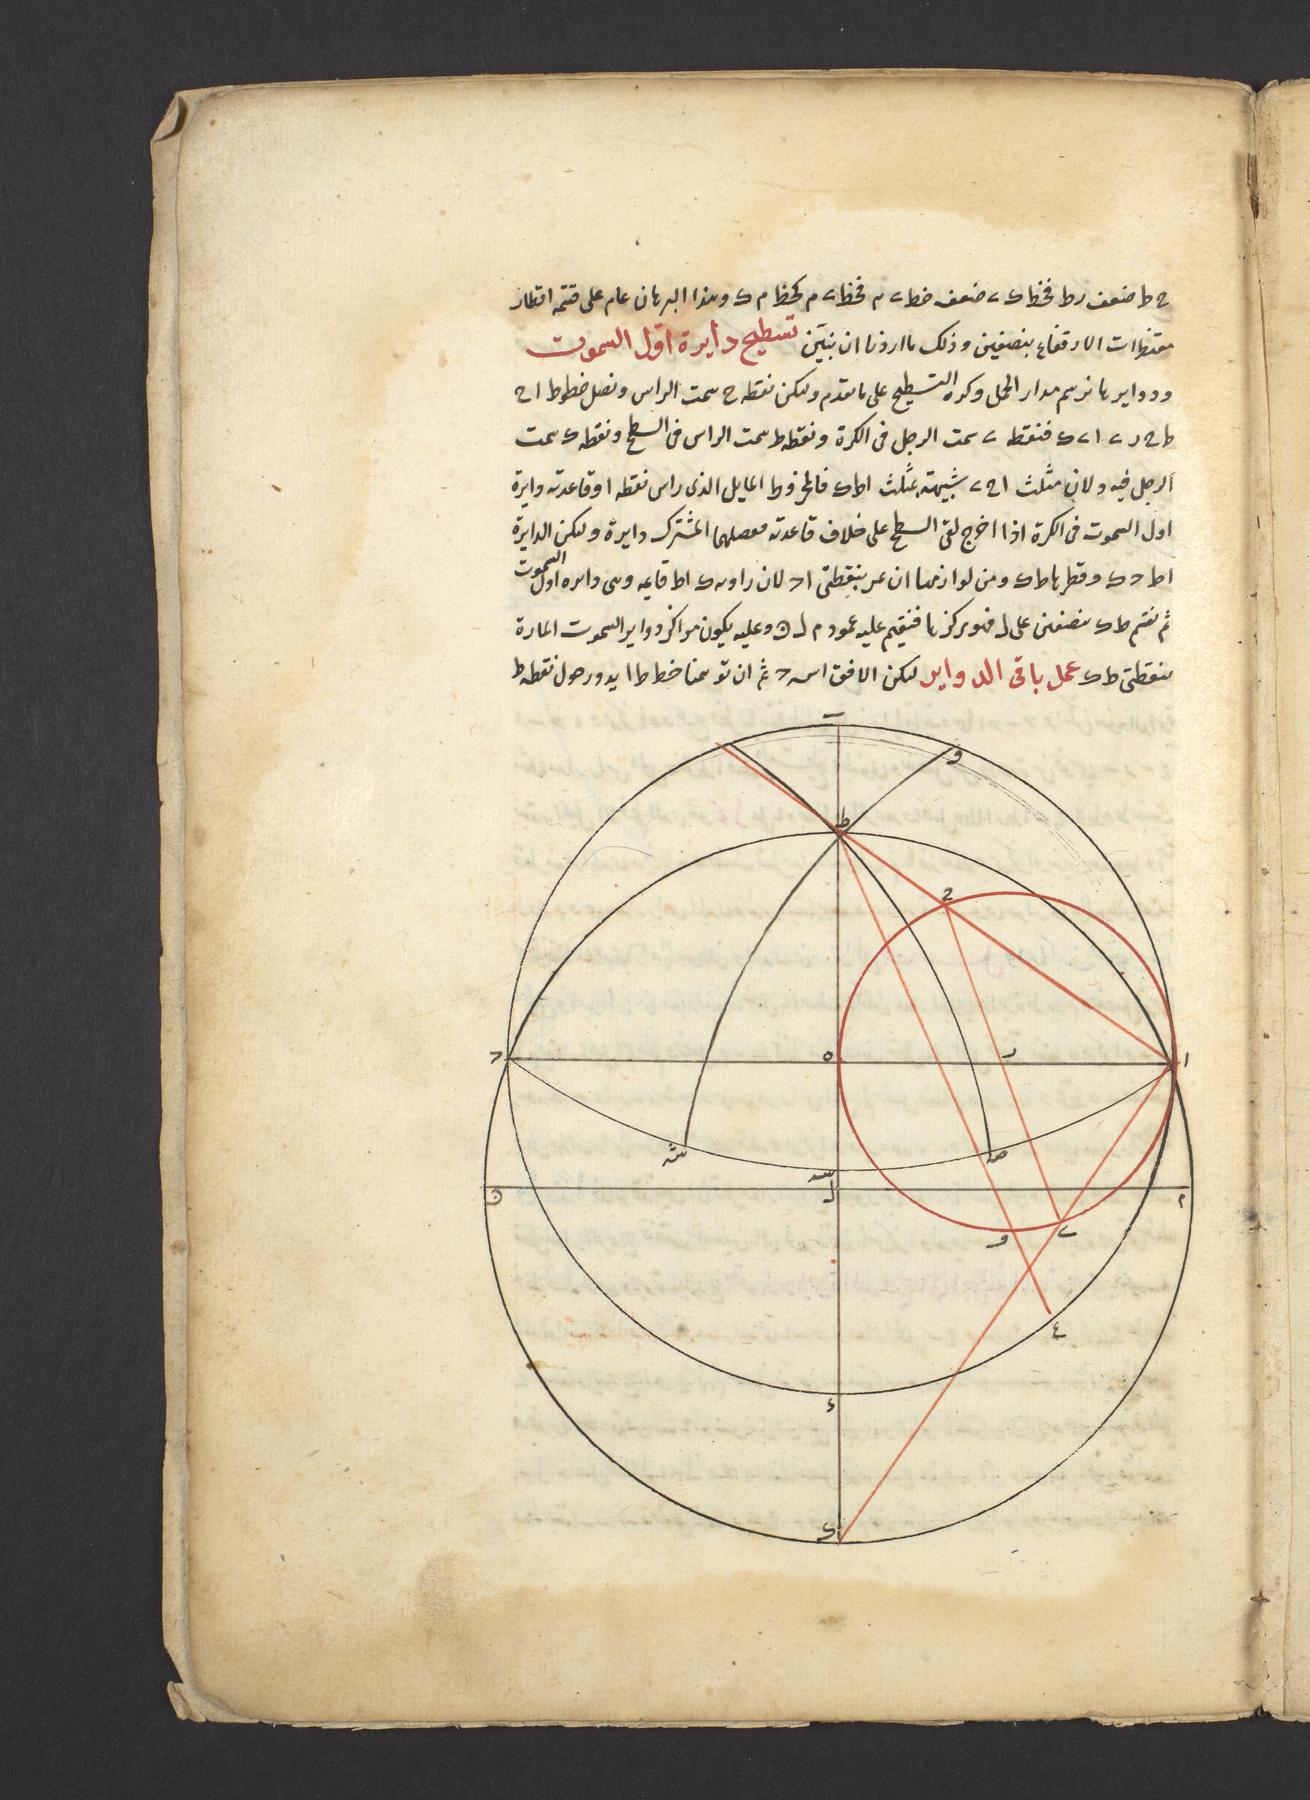 ح ط ضعف ر ط فخط ك ى ضعف خط ى م فخط ى م كخط م ك وهذا البرهان عام على قسمة اقطار
مقنطرات الارتفاع بنصفين وذلك ما اردنا ان نبيّن تسطيح دايرة اول السموت
ودوايرها نرسم مدار الحمل وكرة التسطيح على ما تقدم وليكن نقطة ح سمت الراس ونصل خطوط ا ح
ط ح ر ى ا ى ك فنقطة ى سمت الرجل فى الكرة ونقطة ط سمت الراس فى السطح ونقطة ك سمت
الرجل فيه ولان مثلث ا ح ى شبيهة بمثلث ا ط ك فالمخروط المايل الذى راس نقطة ا وقاعدته دايرة
اول السموت فى الكرة اذا اخرج لقى السطح على خلاف قاعدته فصلهما المشترك دايرة وليكن الدايرة
ا ط ح ك وقطرها ط ك ومن لوازمها ان يمر بنقطتى ا ح لان زاوية ك ا ط قايمه وهى دايره اول السموت
ثم نقسم ط ك بنصفين على ل فهو مركزها فنقيم عليه عمود م ل ن وعليه يكون مراكز دواير السموت المارة
بنقطتى ط ك عمل باقى الدواير ليكن الافق ا س ح ثم ان توهمنا خط ط ا يدور حول نقطة ط
ب
و
ط
ح
ح
ه
ر
ا
ش
ص
س
ن
ل
م
و
ى
ع
ء
ك